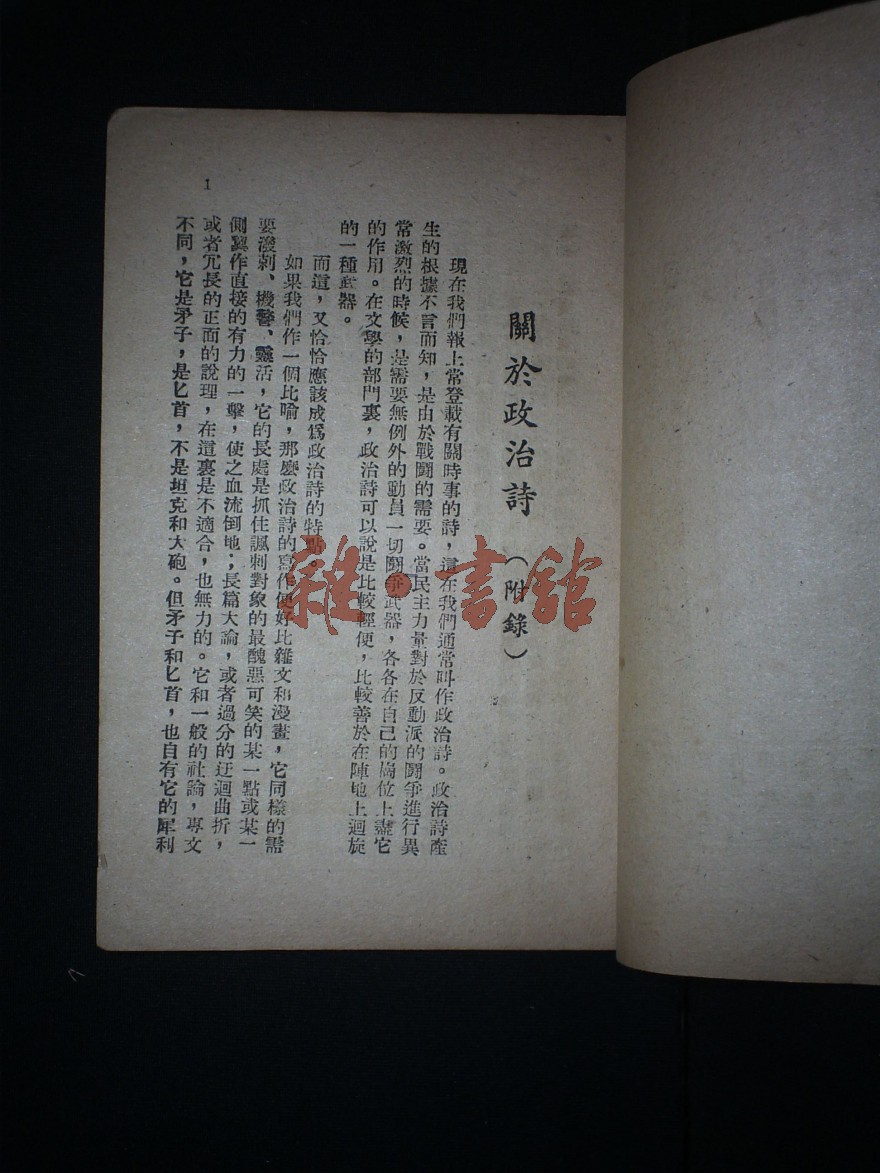 關於政治詩（附錄）
現在我們報上常登載有關時事的詩，這在我們通常叫作政治詩。政治詩產
生的根據不言而知，是由於戰鬪的需要。當民主力量對於反動派的鬪爭進行異
常激烈的時候，是需要無例外的動員一切鬪爭武器，各各在自己的崗位上盡它
的作用。在文學的部門裏，政治詩可以說是比較輕便，比較善於在陣地上迴旋
的一種武器。
而這，又恰恰應該成爲政治詩的特點。
如果我們作一個比喻，那麽政治詩的寫作便好比雜文和漫畫，它同樣的需
要潑剌、機警、靈活，它的長處是抓住諷刺對象的最醜惡可笑的某一點或某一
側翼作直接的有力的一擊，使之血流倒地；長篇大論，或者過分的迂迴曲折，
或者冗長的正面的說理，在這裏是不適合，也無力的。它和一般的社論，專文
不同，它是矛子，是匕首，不是坦克和大砲。但矛子和匕首，也自有它的犀利
1
雜·書館